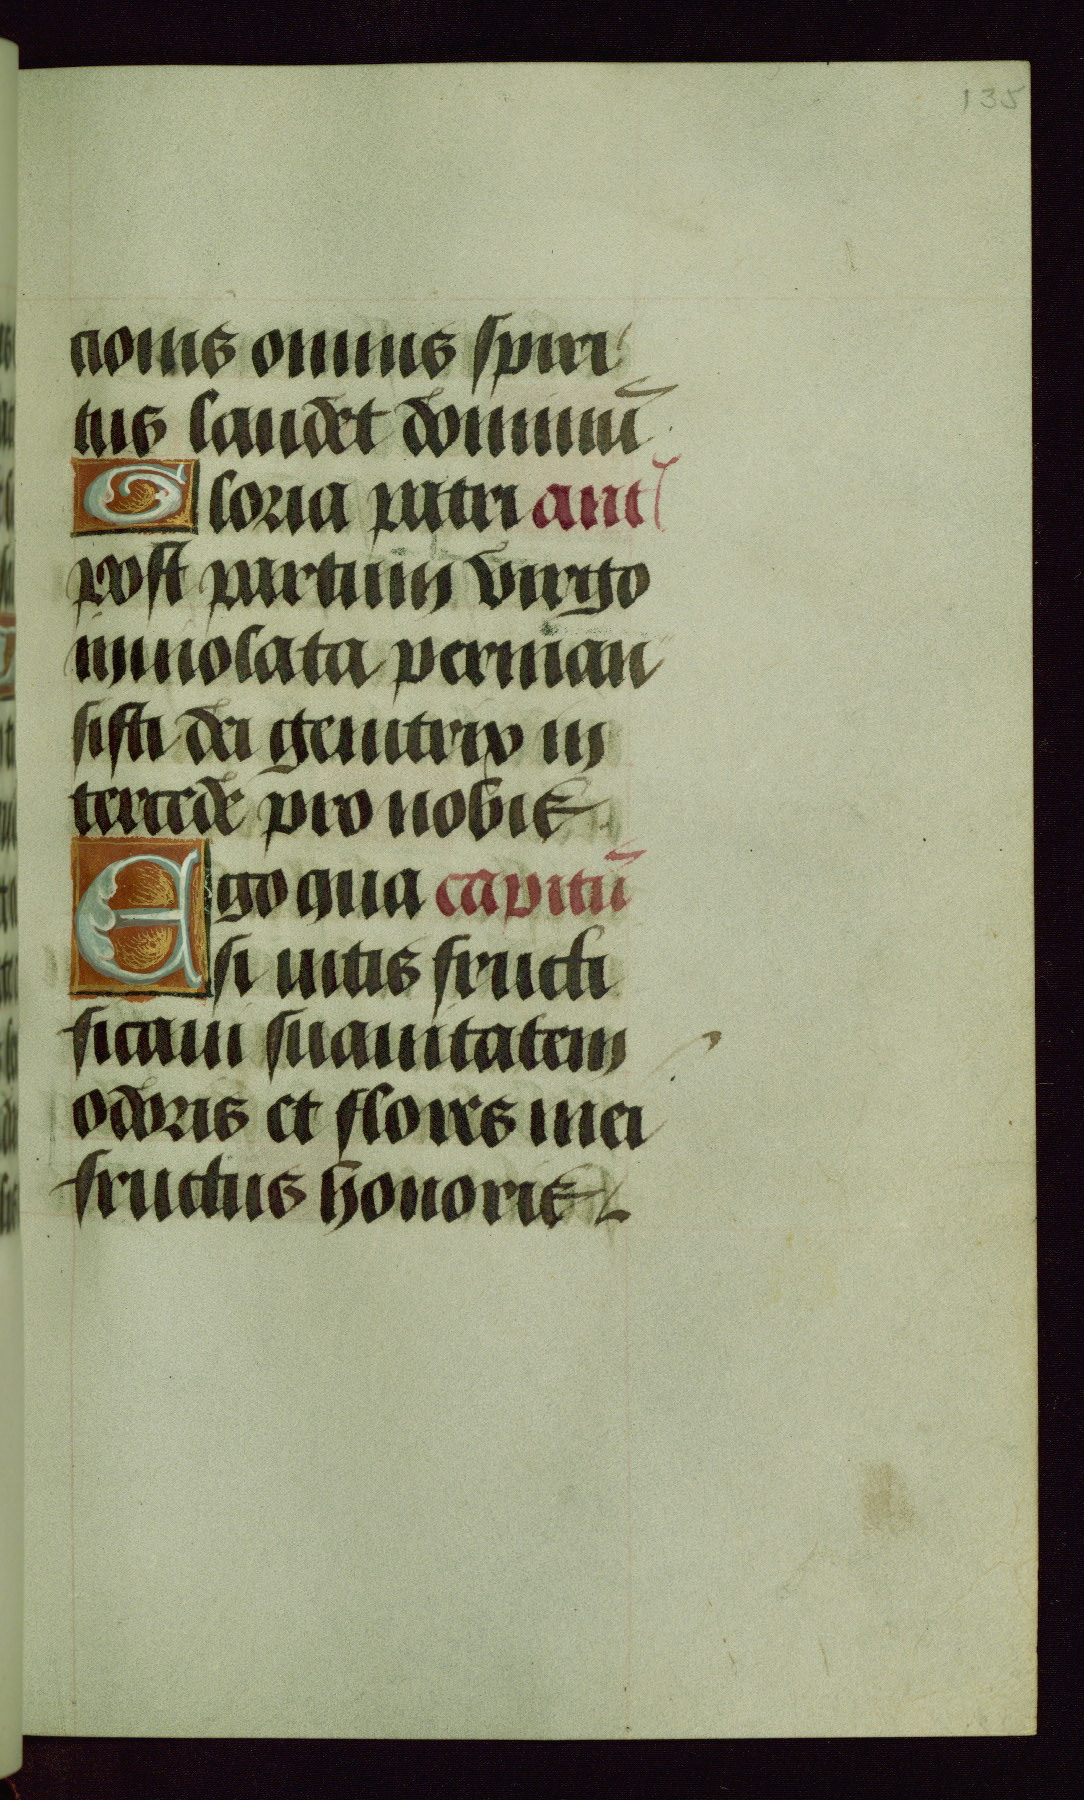 135
cionis omnis spiri
tus laudet dominū
Gloria patri ant
post partum virgo
inuiolata perman
sisti dei genitrix in
tercede pro nobis
Ego qua capitū
si uitis fructi
ficaui suauitatem
odoris et flores mei
fructus honoris